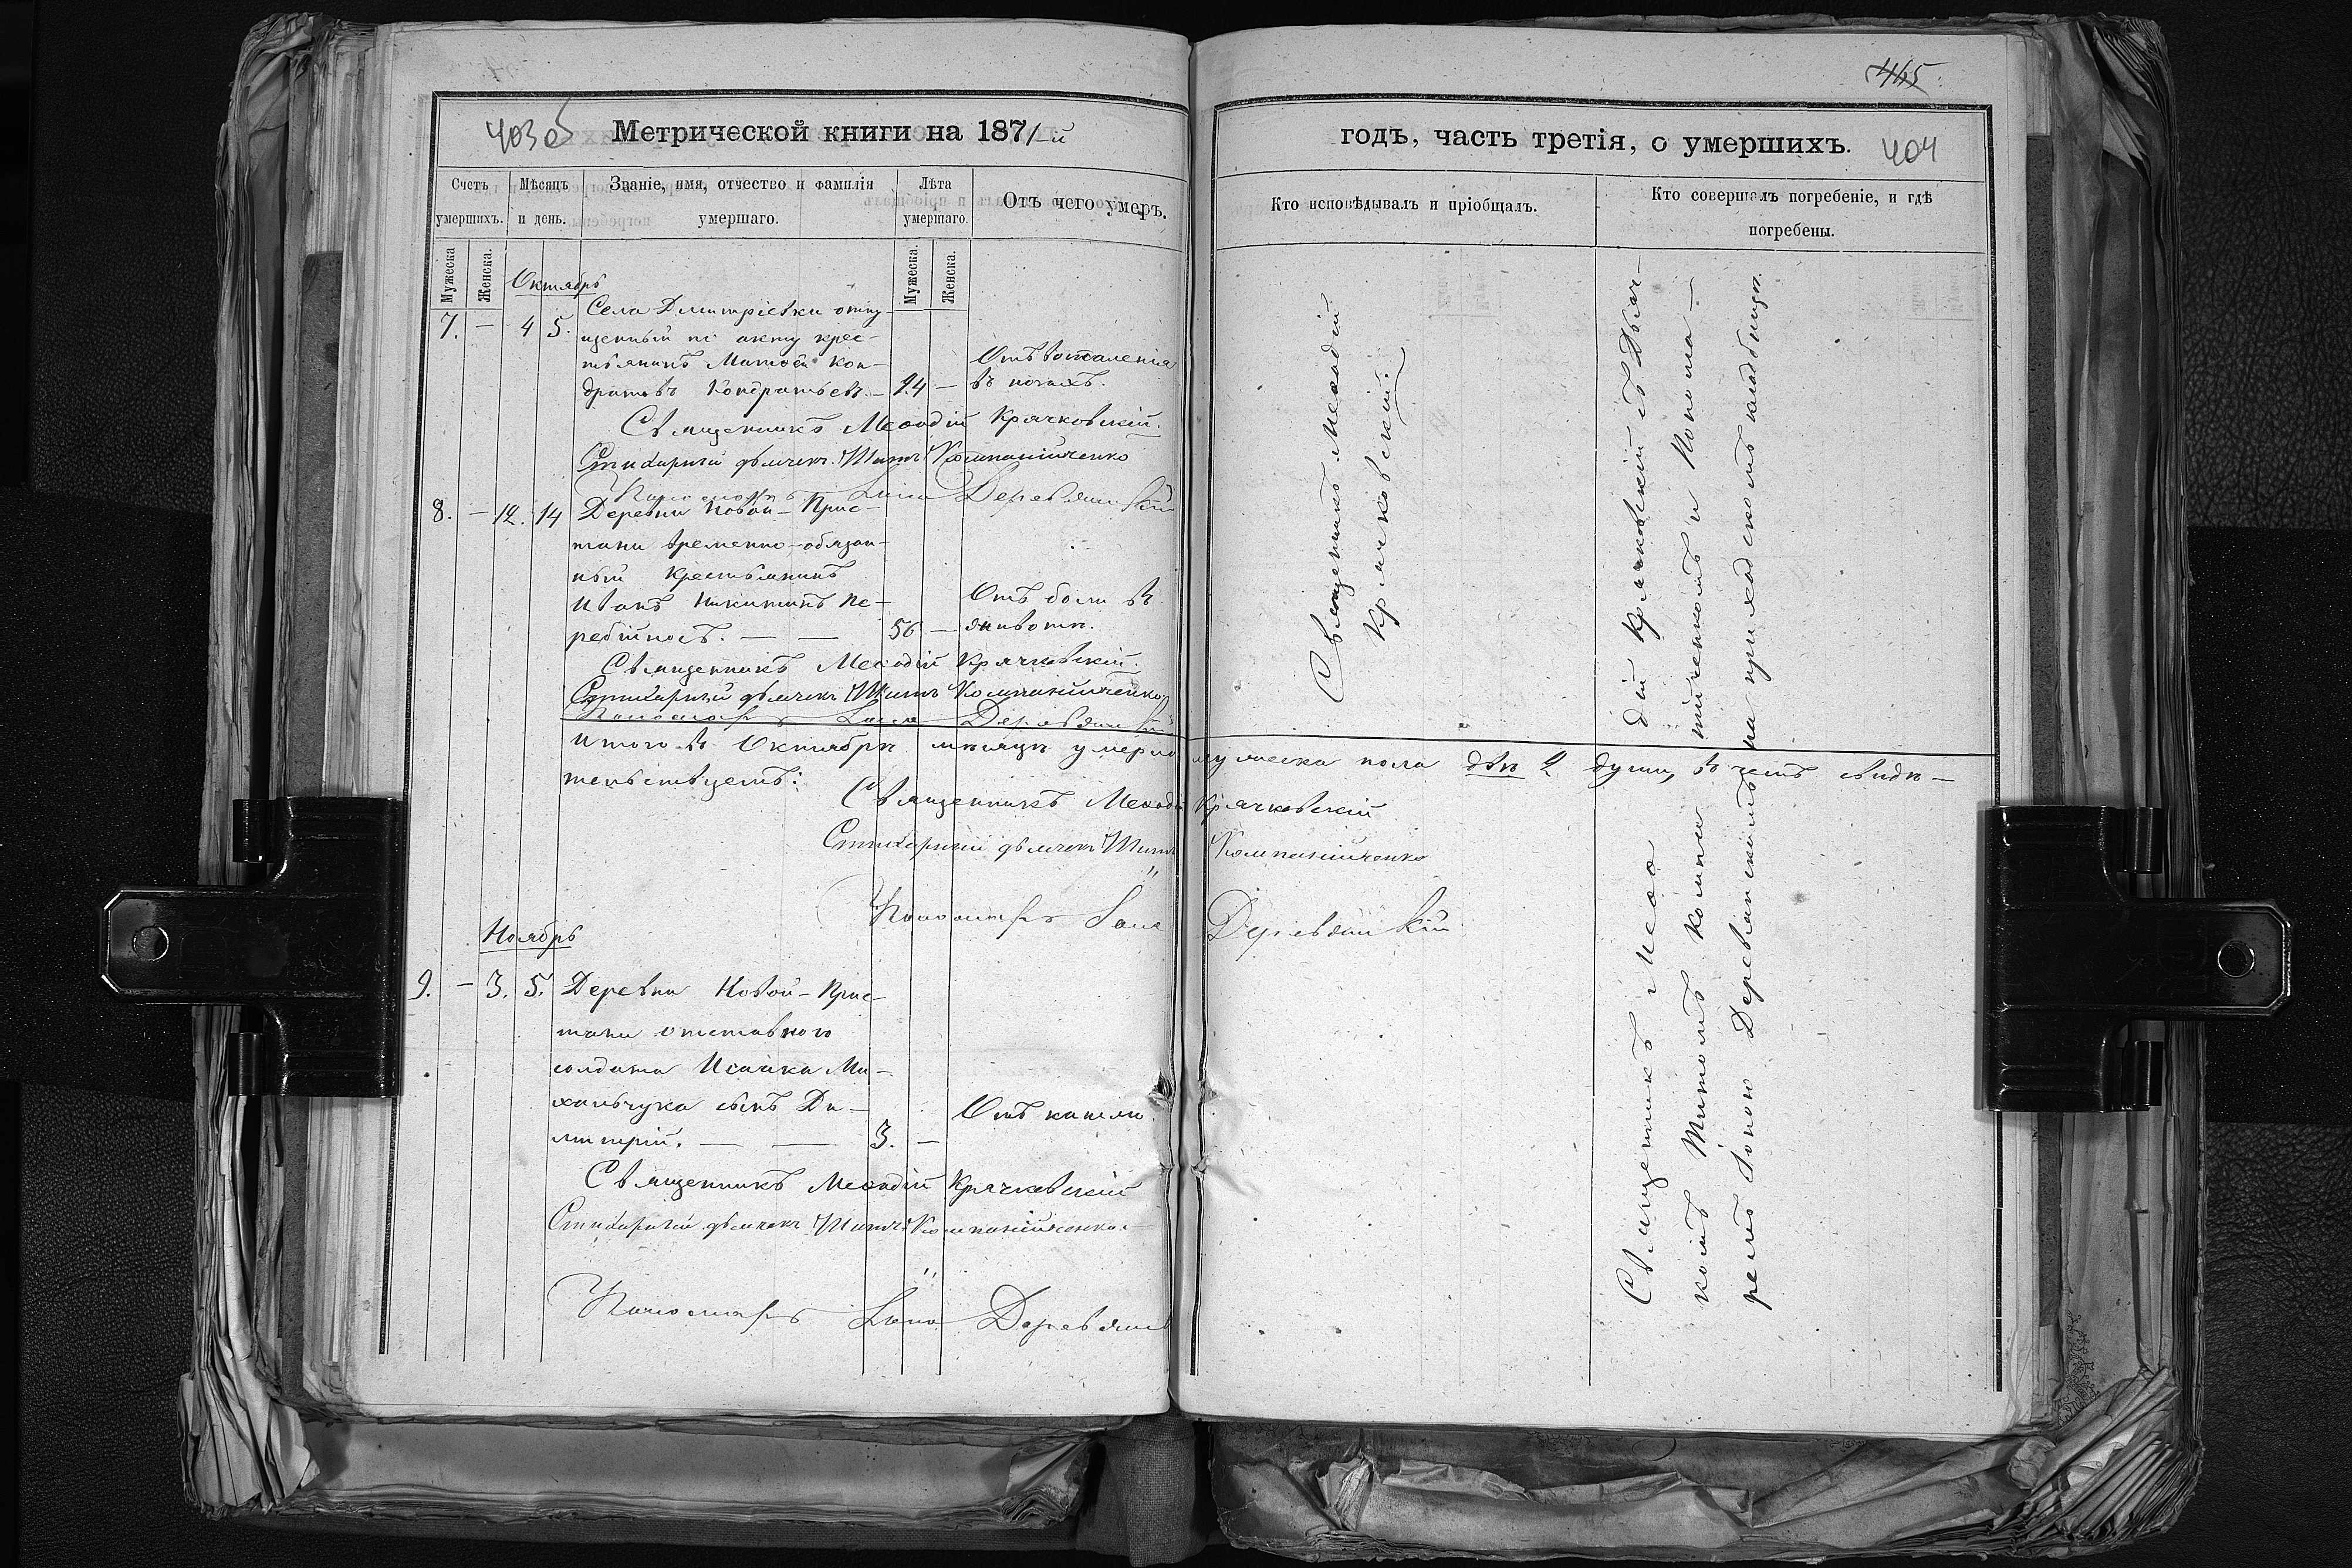 403 об
Метрической книги на 1871-й
Счетъ умершихъ.
Мѣсяцъ и день.
Званіе, имя, отчество и фамилія умершаго.
Лѣта умершаго.
Отъ чего умеръ.
Мужеска.
Женска.
Мужеска.
Женска.
Октябрь
7. — 4 5. Села Дмитріевки отпу-
щенный по акту крес-
тьянинъ Матѳей Кон-
дратовъ Кондратьевъ. — 24 —
Отъ воспаленія
въ ногахъ.
Священникъ Меѳодій Крячковскій.
Стихарный дьячекъ Титъ Компанійченко
Пономарь Іона Деревянскій
8. — 12. 14 Деревни Новой-Прис-
тани временно-обязан-
ный крестьянинъ
Иванъ Никитинъ Пе-
ребійносъ. — — 56 —
Отъ боли въ
животѣ.
Священникъ Меѳодій Крячковскій.
Стихарный дьячекъ Титъ Компанійченко
Пономарь Іона Деревянскій
Итого въ Октябрѣ мѣсяцѣ умерло мужеска пола двѣ 2 души, въ чемъ свидѣ-
тельствуемъ:
Священникъ Меѳодій Крячковскій
Стихарный дьячекъ Титъ Компанійченко
Пономарь Іона Деревянскій
Ноябрь
9. — 3. 5. Деревни Новой-Прис-
тани отставного
солдата Исаика Ми-
хальчука сынъ Ди-
митрій. — — 3. —
Отъ кашлю
Священникъ Меѳодій Крячковскій
Стихарный дьячекъ Титъ Компанійченко
Пономарь Іона Деревянс
465
годъ, часть третія, о умершихъ.
404
Кто исповѣдывалъ и пріобщалъ.
Кто совершалъ погребеніе, и гдѣ погребены.
Священникъ Меѳодій
Крячковскій.
Священникъ Меѳо-
дій Крячковскій съ Дьяч-
комъ Титомъ Компаній-
ченкомъ и Понома-
ремъ Іоною Деревянскимъ
на приходскомъ кладбищѣ.